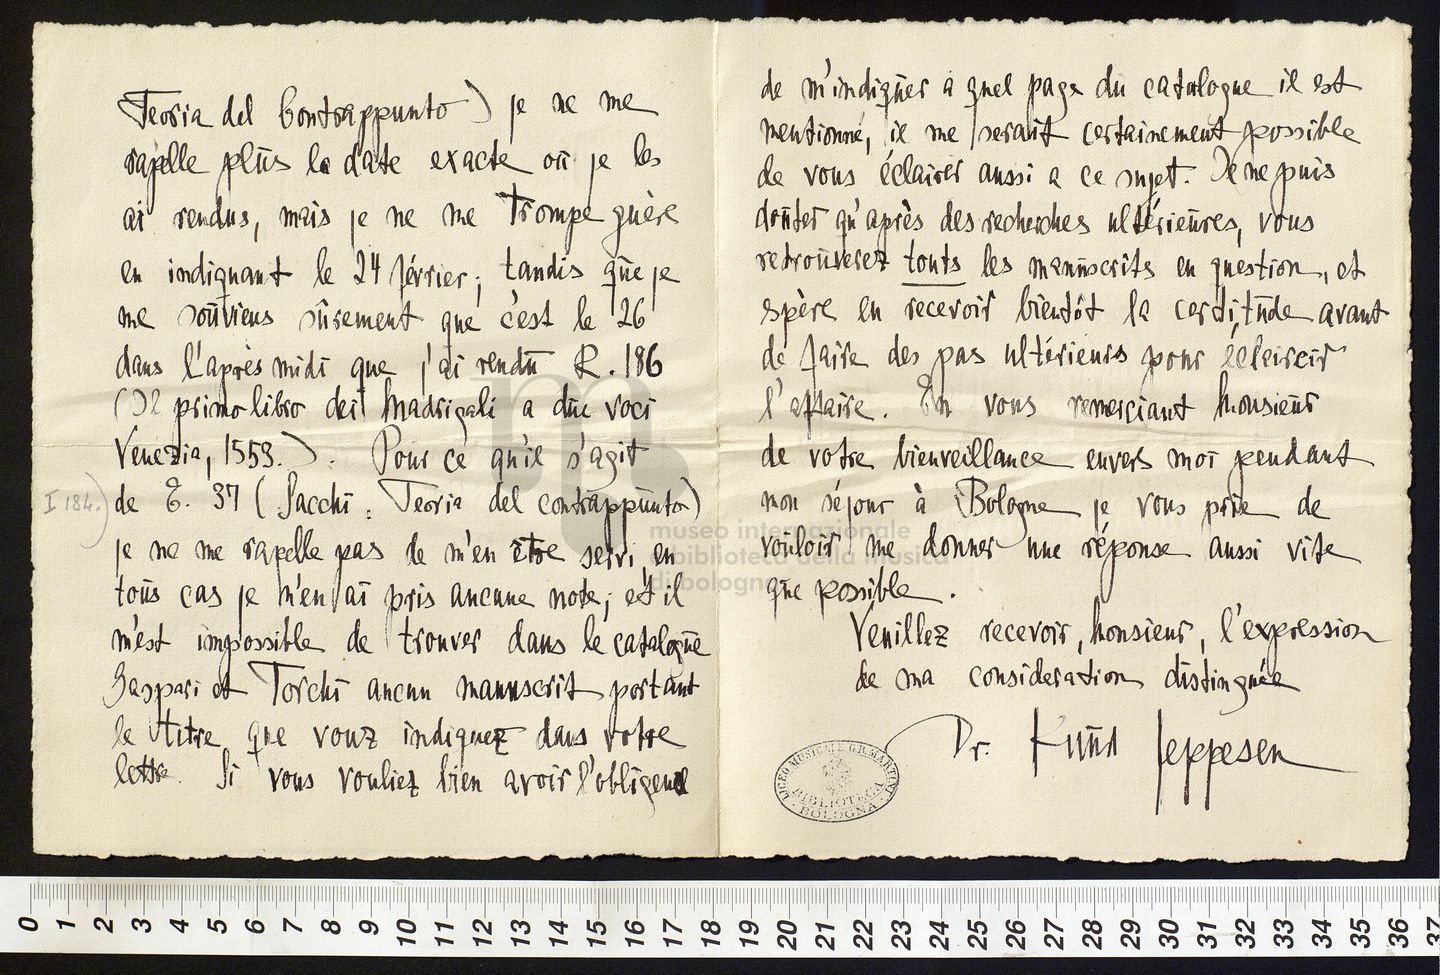 Teoria del Contrappunto) je ne me
rapelle plus la date exacte où je les
ai rendus, mais je ne me trompe guère
en indiquant le 24 février; tandis que je
me souviens sûrement que c'est le 26
dans l'après midi que j'ai rendu R. 186
(Il primo libro dei Madrigali a due voci
Venezia, 1559.). Pour ce qu'il s'agit
I 184.)
de E. 37 (Sacchi: Teoria del contrappunto)
je ne me rapelle pas de m'en être servi, en
tous cas je n'en ai pris aucune note; et il
m'est impossible de trouver dans le catalogue
Gaspari et Torchi aucun manuscrit portant
le titre que vous indiquez dans votre
lettre. Si vous vouliez bien avoir l'obligence
de m'indiquer à quel page du catalogue il est
mentionné, il me serait certainement possible
de vous éclairer aussi a ce sujet. Je ne puis
douter qu'après des recherches ultérieures, vous
retrouverez touts les manuscrits en question, et
espère en recevoir bientôt la certitude avant
de faire des pas ultérieurs pour écleircir
l'affaire. En vous remerciant Monsieur
de votre bienveillance envers moi pendant
mon séjour à Bologne je vous prie de
vouloir me donner une réponse aussi vite
que possible.
Veuillez recevoir, Monsieur, l'expression
de ma consideration distinguée
Dr. Knud Jeppesen
LICEO MUSICALE G.B. MARTINI
BIBLIOTECA
BOLOGNA
museo internazionale
e biblioteca della musica
di bologna
0 1 2 3 4 5 6 7 8 9 10 11 12 13 14 15 16 17 18 19 20 21 22 23 24 25 26 27 28 29 30 31 32 33 34 35 36 37